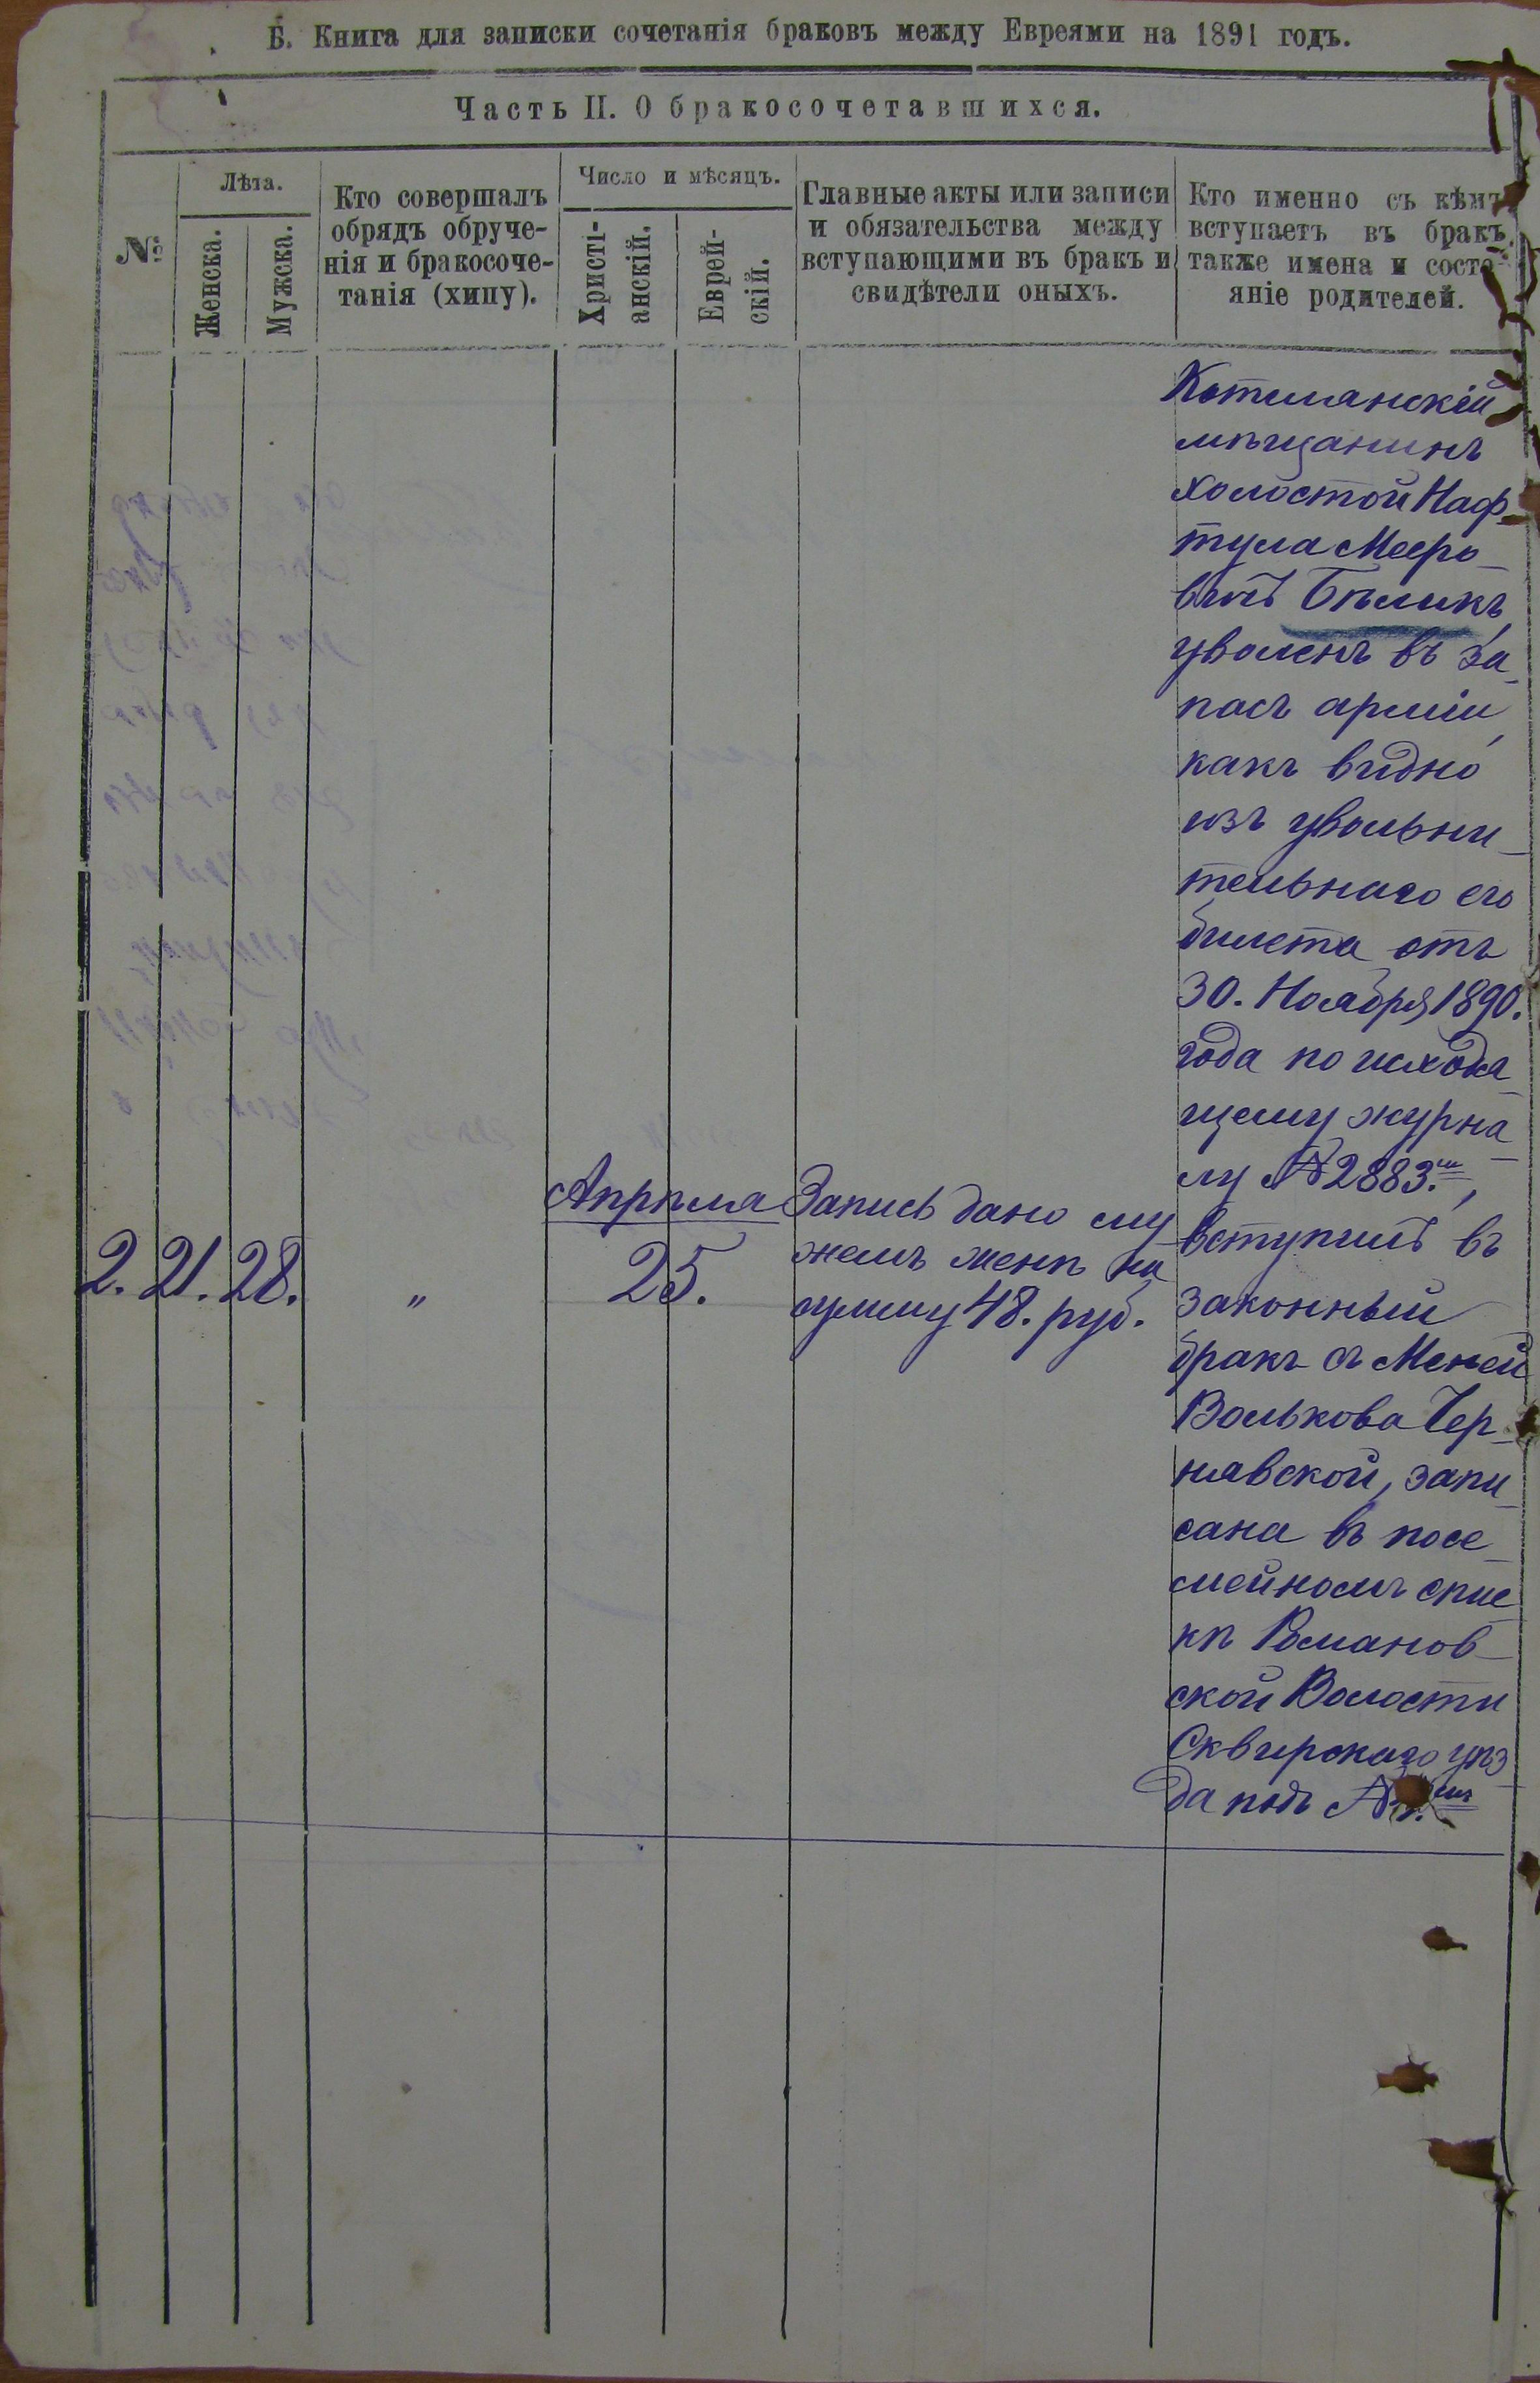 Б. Книга для записки сочетанія браковъ между Евреями на 1891 годъ.
Часть II. О бракосочетавшихся.
№
Лѣта.
Женска.
Мужска.
Кто совершалъ
обрядъ обруче-
нія и бракосоче-
танія (хипу).
Число и мѣсяцъ.
Христі-
анскій.
Еврей-
скій.
Главные акты или записи
и обязательства между
вступающими въ бракъ и
свидѣтели оныхъ.
Кто именно съ кѣмъ
вступаетъ въ бракъ,
также имена и состо-
яніе родителей.
2.
21.
28.
"
Апрѣля
25.
Запись дано му
жемъ женѣ на
сумму 48. руб.
мѣщанинъ
холостой Наф
тула Мееро
вичъ Бѣликъ,
уволенъ въ за
пасъ арміи,
какъ видно
изъ увольни
тельнаго его
билета отъ
30. Ноября 1890.
года по исходя
щему журна
лу №2883.мъ,
вступилъ въ
законный
бракъ съ Меней
Волькова Чер
нявской, запи
сана въ посе
мейномъ спис
кѣ Романов
ской Волости
Сквирскаго уѣз
да подъ №